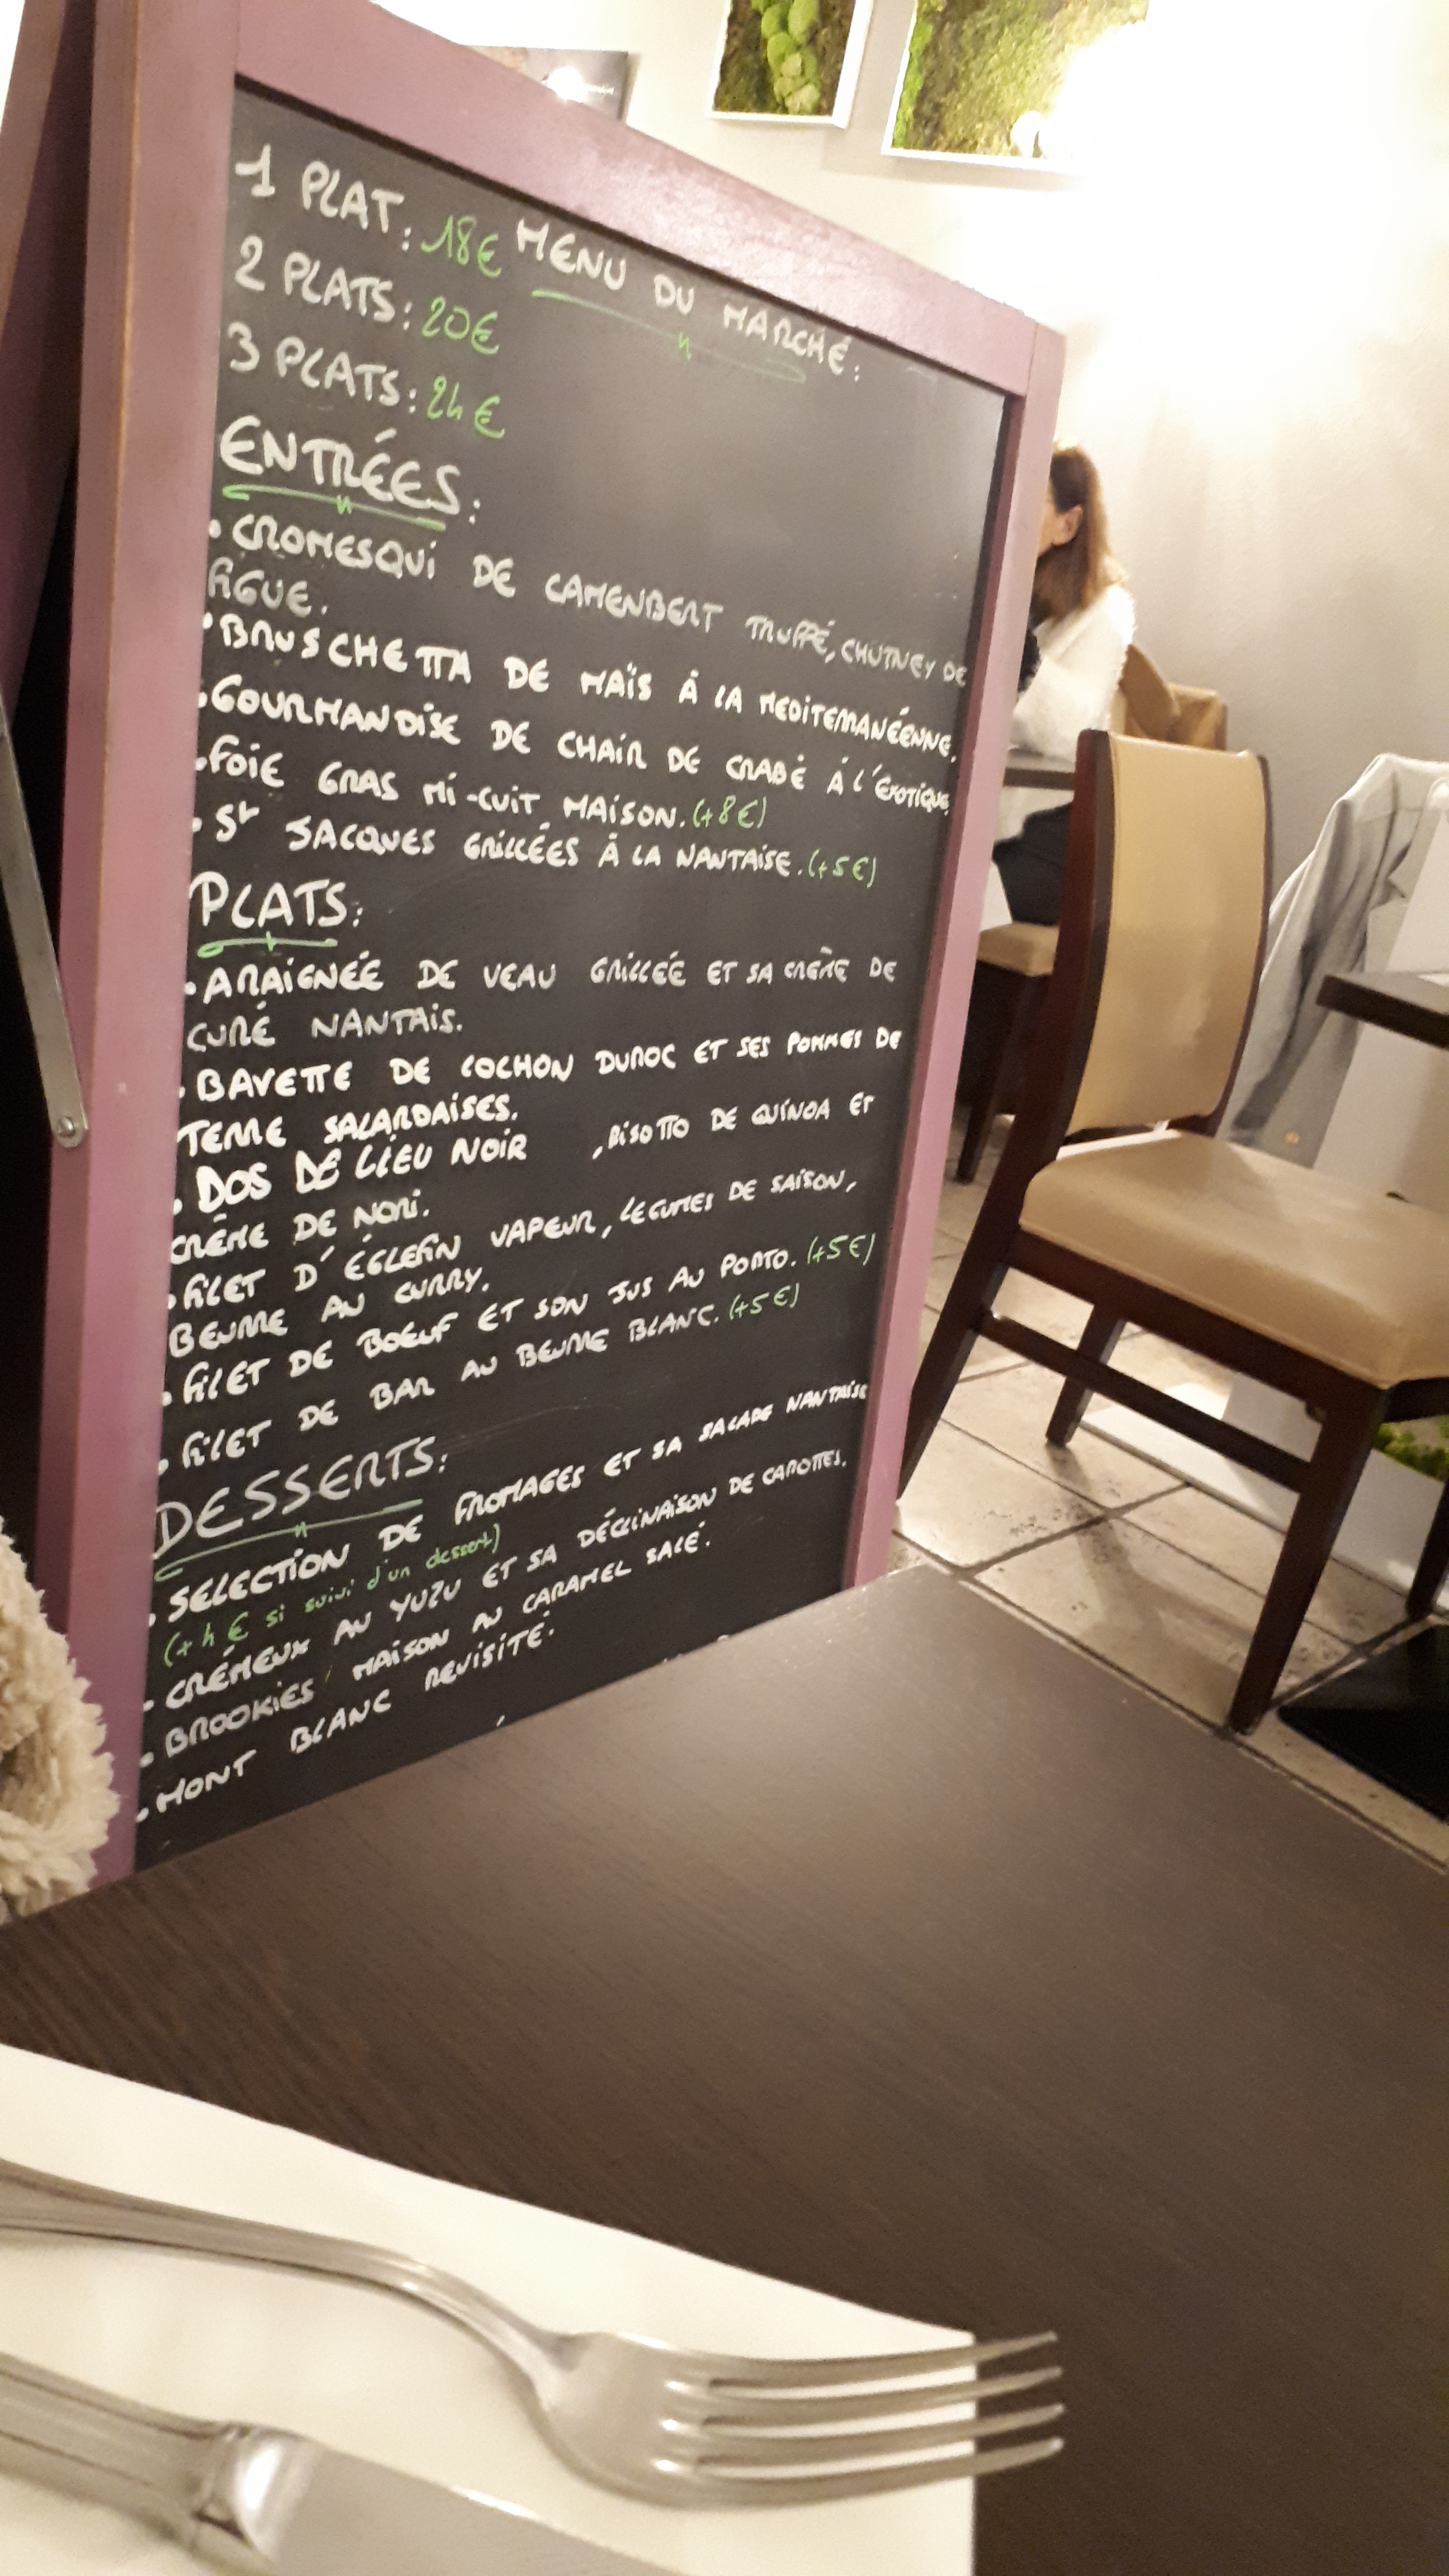 1 PLAT: 18€ MENU DU MARCHÉ:
2 PLATS: 20€
3 PLATS: 24€
ENTRÉES:
• CROMESQUI DE CAMENBERT TRUFFÉ, CHUTNEY DE
FIGUE.
• BRUSCHETTA DE MAÏS À LA MEDITERRANÉENNE.
• GOURMANDISE DE CHAIR DE CRABE À L'EXOTIQUE.
• FOIE GRAS MI-CUIT MAISON. (+8€)
• St JACQUES GRILLÉES À LA NANTAISE. (+5€)
PLATS:
• ARAIGNÉE DE VEAU GRILLÉE ET SA CRÈME DE
CURÉ NANTAIS.
• BAVETTE DE COCHON DUROC ET SES POMMES DE
TERRE SALARDAISES.
• DOS DE LIEU NOIR , RISOTTO DE QUINOA ET
CRÈME DE NORI.
• FILET D'ÉGLEFIN VAPEUR, LEGUMES DE SAISON,
BEURRE AU CURRY.
• FILET DE BOEUF ET SON JUS AU PORTO. (+5€)
• FILET DE BAR AU BEURRE BLANC. (+5€)
DESSERTS:
• SELECTION DE FROMAGES ET SA SALADE NANTAISE
(+4€ si suivi d'un dessert)
• CRÉMEUX AU YUZU ET SA DÉCLINAISON DE CAROTTES.
• BROOKIES MAISON AU CARAMEL SALÉ.
• MONT BLANC REVISITÉ.